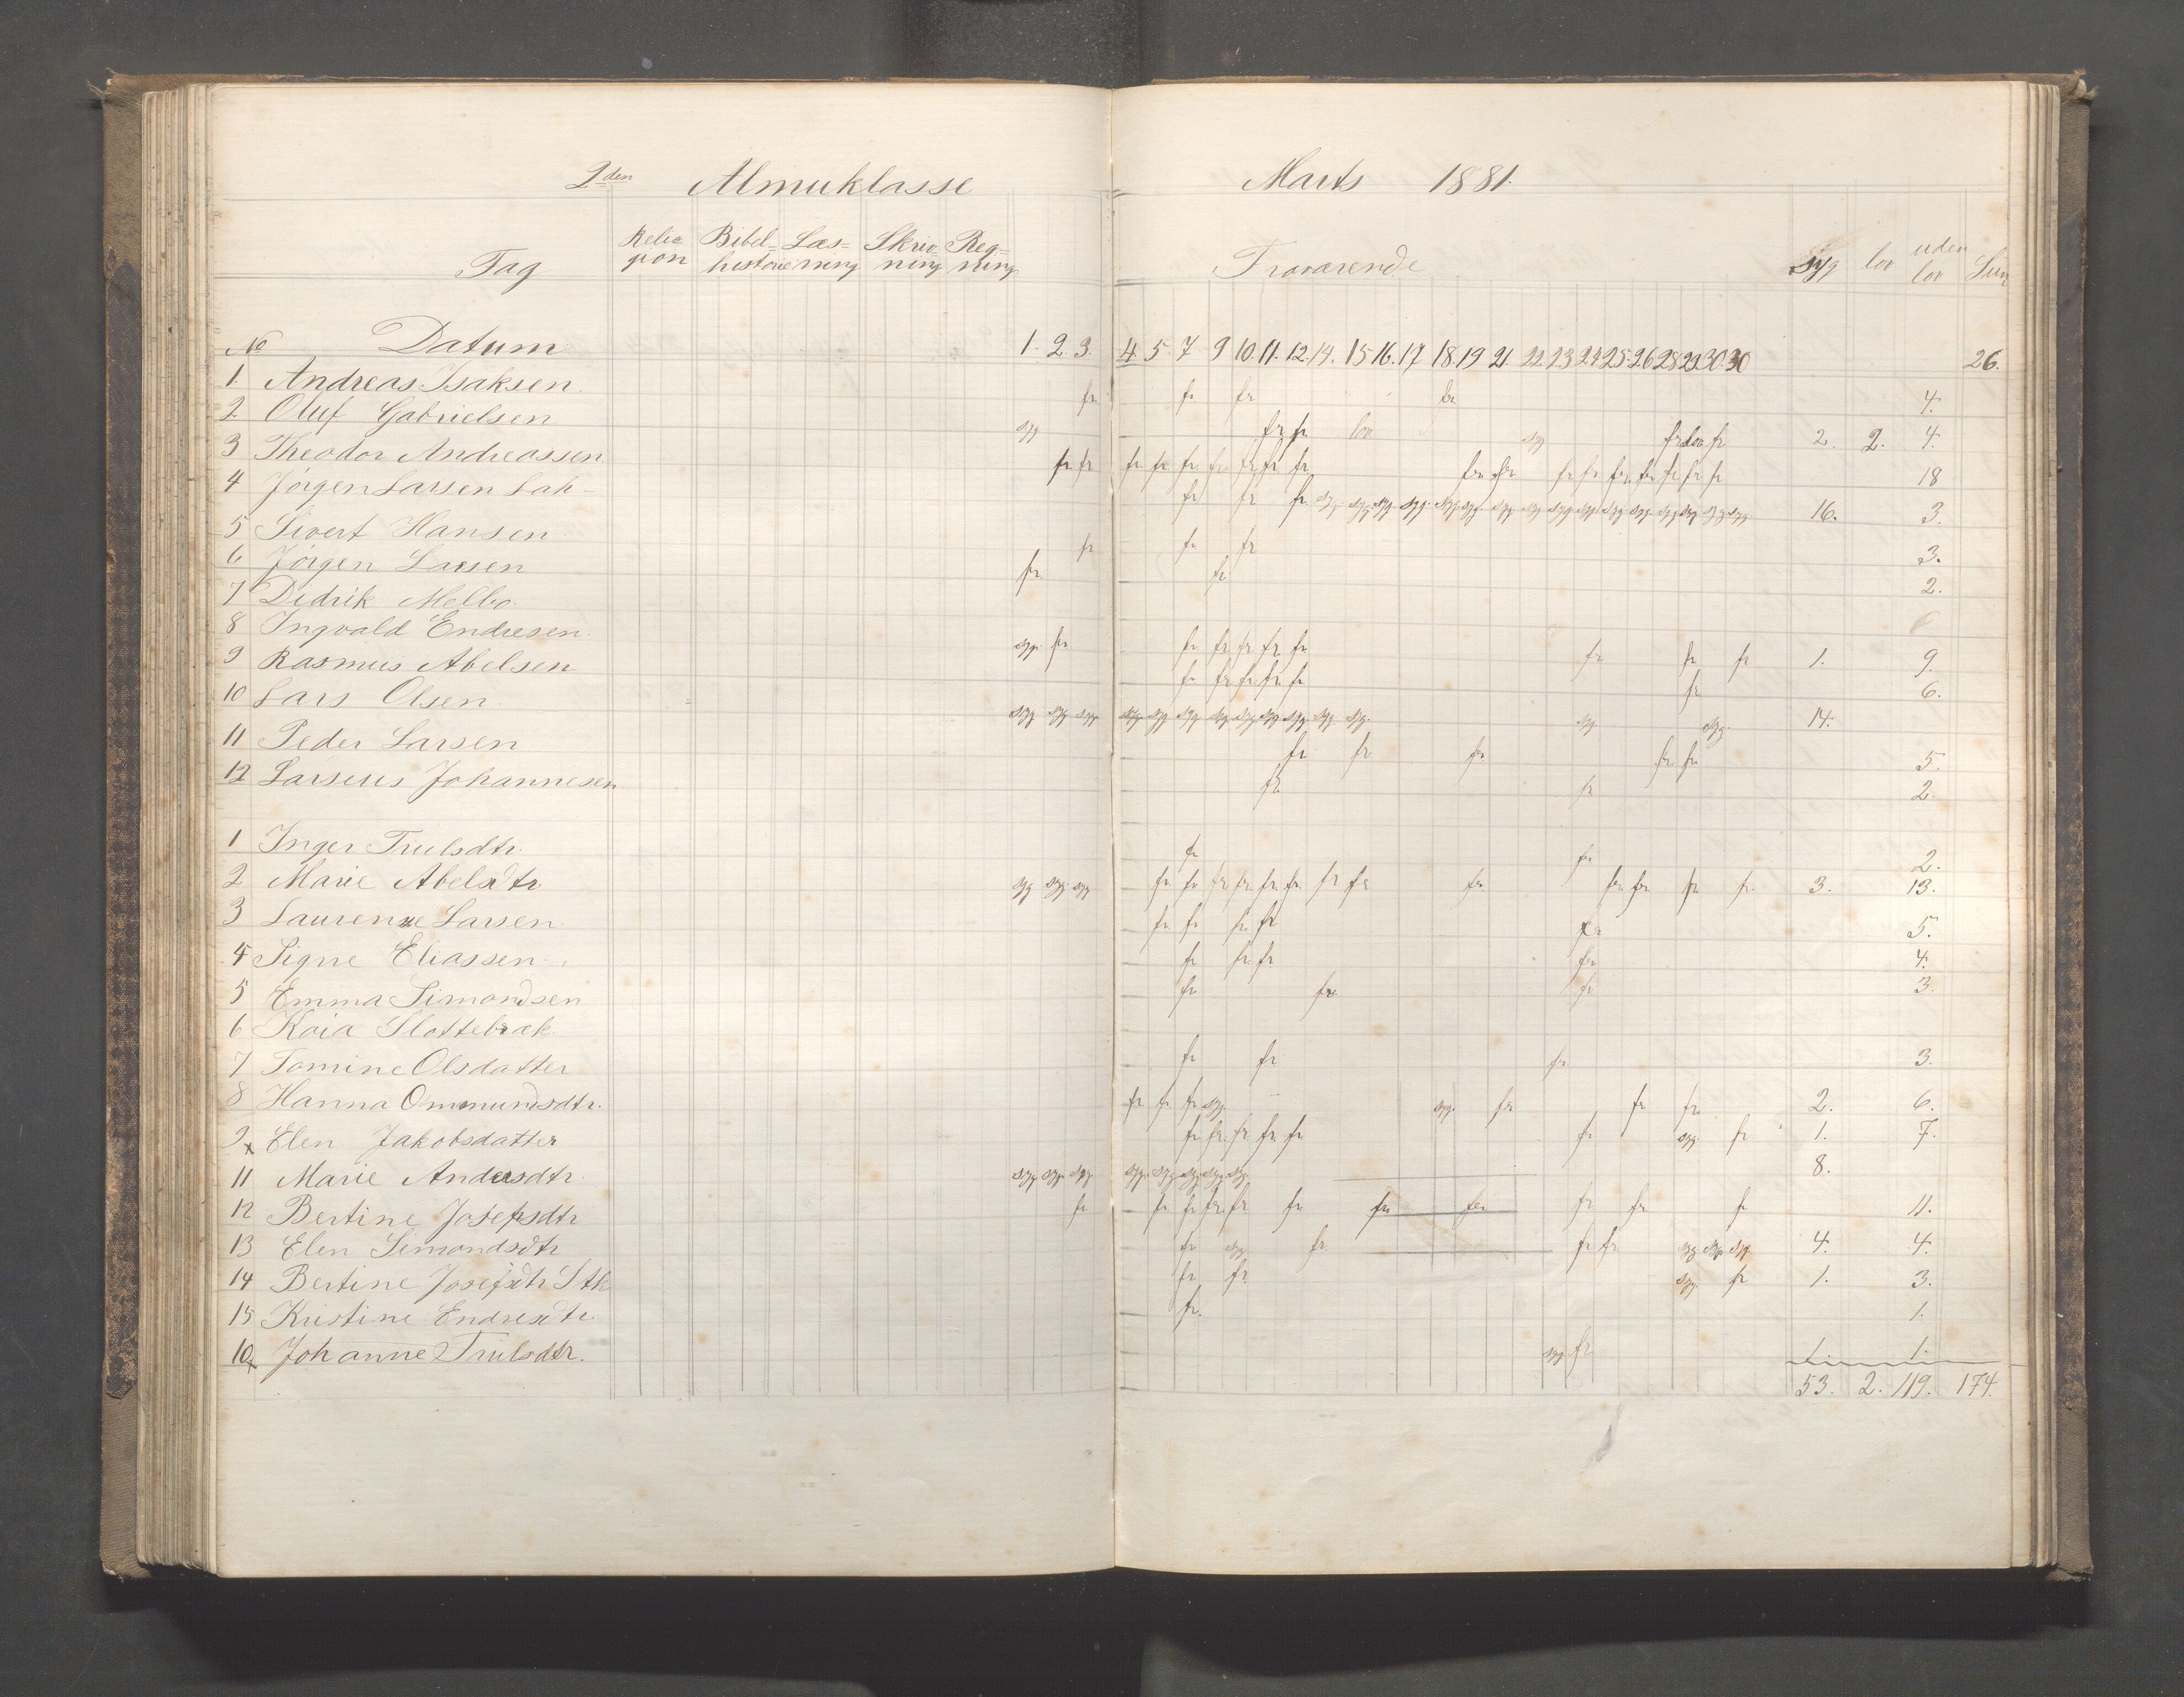 2den Almuklasse Marts 1881.
Fag Religion Bibelhistorie Læsning Skrivning Regning Fraværende syg lov uden lov Sum
No Datum 1. 2. 3. 4. 5. 7 9 10. 11. 12. 14. 15 16. 17 18. 19 21. 22. 23 24. 25. 26 28 29 30. 30 26.
1 Andreas Isaksen fr fr fr fr 4.
2 Oluf Gabrielsen syg fr fr lov syg fr lov fr 2. 2. 4.
3 Theodor Andreassen fr fr fr fr fr fr fr fr fr fr fr fr fr fr fr fr fr fr 18
4 Jörgen Larsen Sah- fr fr fr syg syg syg syg syg syg syg syg syg syg syg syg syg syg syg syg 16. 3.
5 Sivert Hansen fr fr fr 3.
6 Jörgen Larsen fr fr 2.
7 Didrik Melbo.
8 Ingvald Endresen syg fr fr fr fr fr fr fr fr fr 1. 9.
9 Rasmus Abelsen fr fr fr fr fr fr 6.
10 Lars Olsen syg syg syg syg syg syg syg syg syg syg syg syg syg syg 14.
11 Peder Larsen fr fr fr fr fr 5.
12 Larseus Johannesen fr fr 2.
1 Inger Trulsdtr. fr fr 2.
2 Marie Abelsdtr syg syg syg fr fr fr fr fr fr fr fr fr fr fr fr fr 3. 13.
3 Laurenze Larsen fr fr fr fr fr 5.
4 Signe Eliassen fr fr fr fr 4.
5 Emma Simondsen fr fr fr 3.
6 Kaia Slottebrak
7 Tomine Olsdatter fr fr fr 3.
8 Hanna Ommundsdtr. fr fr fr syg syg fr fr fr 2. 6.
9 x Elen Jakobsdatter fr fr fr fr fr fr syg fr 1. 7.
11 Marie Andersdtr. syg syg syg syg syg syg syg syg 8.
12 Bertine Josefsdtr fr fr fr fr fr fr fr fr fr fr fr 11.
13 Elen Simondsdtr fr syg fr. fr fr syg syg syg 4. 4.
14 Bertine Josefsdtr Stk fr fr syg fr 1. 3.
15 Kristine Endresdtr fr. 1.
10 x Johanne Trulsdtr. syg fr 1. 1.
53. 2. 119. 174.